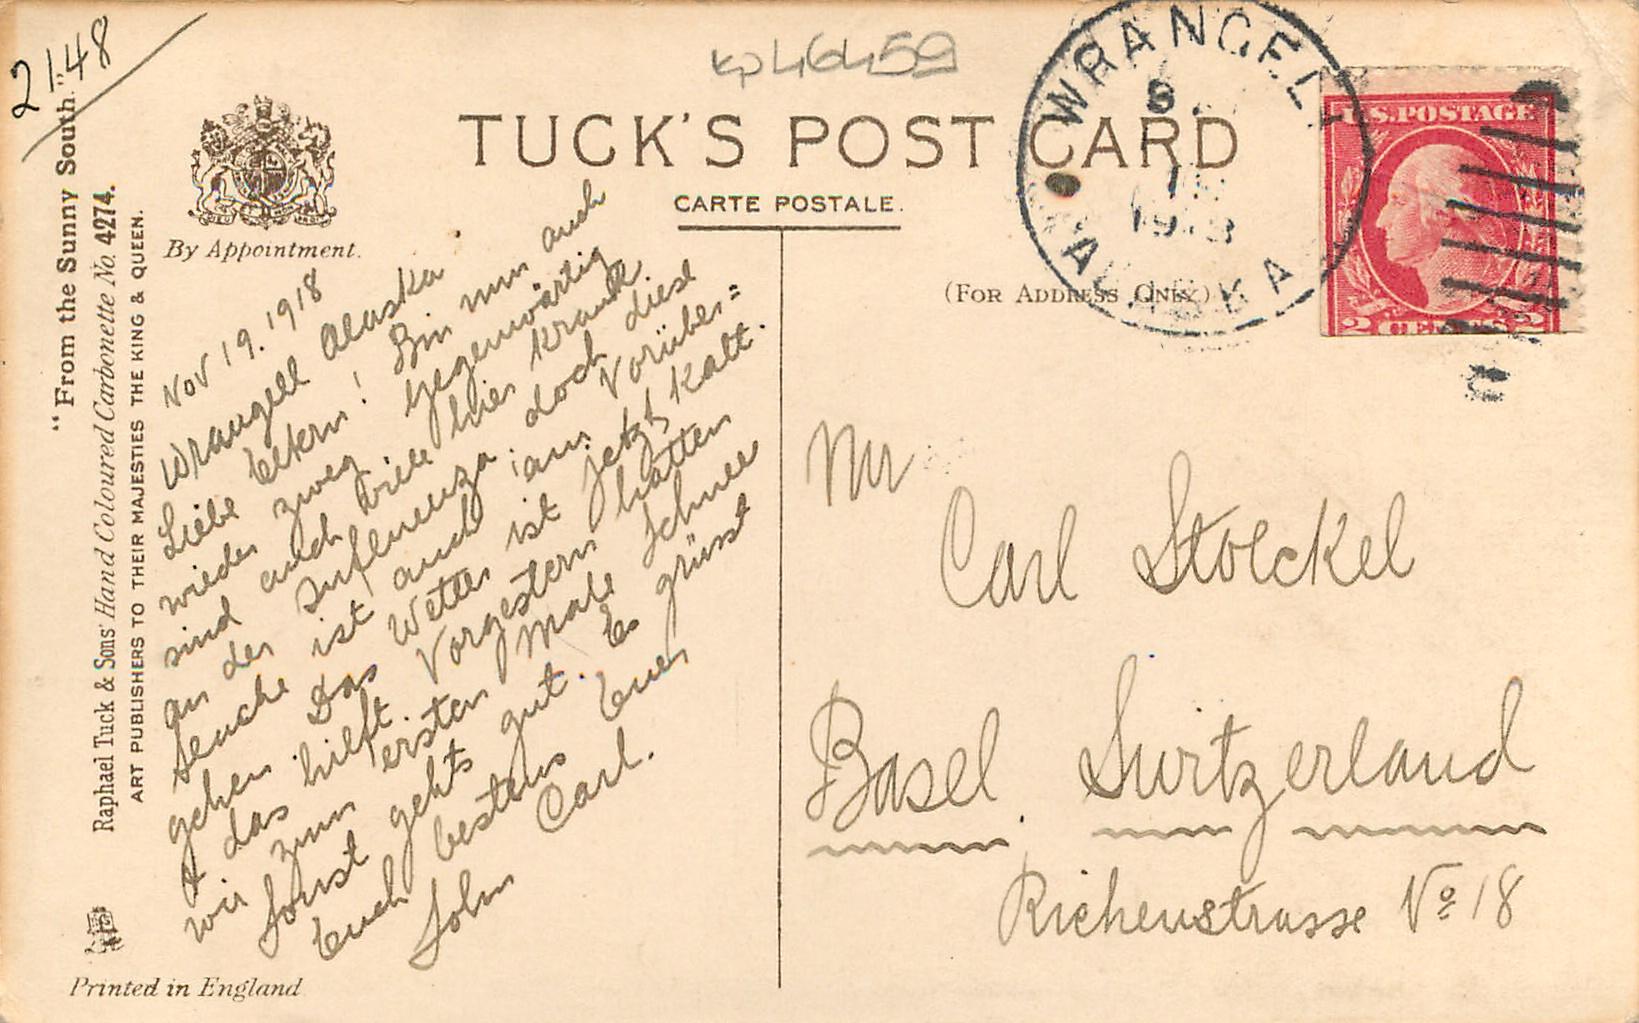 21.48
kp46459
"From the Sunny South."
Raphael Tuck & Sons' Hand Coloured Carbonette No. 4274.
ART PUBLISHERS TO THEIR MAJESTIES THE KING & QUEEN.
By Appointment.
TUCK'S POST CARD
CARTE POSTALE.
(FOR ADDRESS ONLY.)
WRANGELL
ALASKA
U.S. POSTAGE
2 CENTS 2
Nov 19. 1918
Wrangell Alaska
Liebe Eltern! Bin nun auch
wieder zweg. Gegenwärtig
sind auch viele hier krank
an der Influenza. doch diese
Seuche ist auch am Vorüber=
gehen. Das Wetter ist jetzt kalt.
& das hilft. Vorgestern hatten
wir zum ersten Male Schnee
Sonst gehts gut. Es grüsst
Euch bestens Euer
Sohn Carl.
Mr
Carl Stoeckel
Basel Switzerland
Richenstrasse No 18
Printed in England